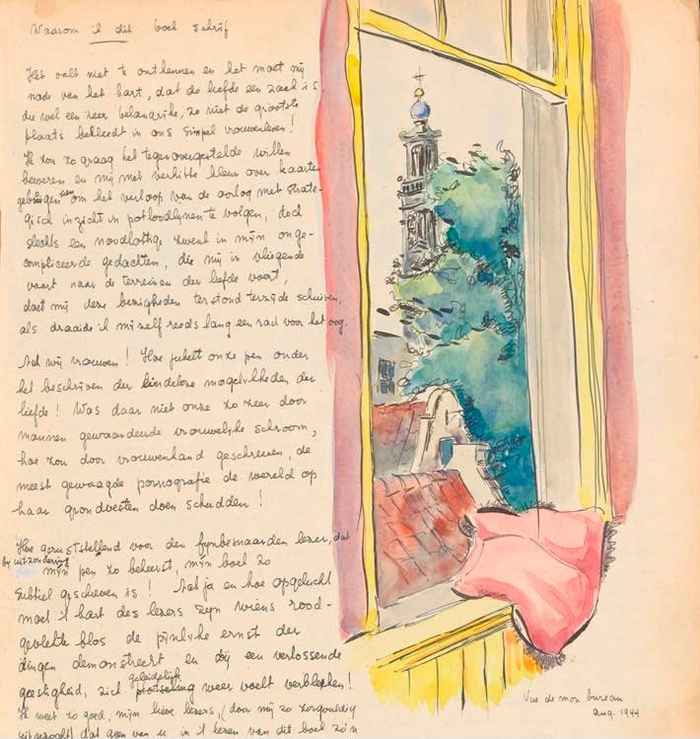 Waarom ik dit boek schrijf
Het valt niet te ontkennen en het moet mij
nade van het hart, dat de liefde een zaak is
die wel een zeer belangrijke, zo niet de grootste
plaats bekleedt in ons simpel vrouwenleven!
Ik zou zo graag het tegenovergestelde willen
beweren en mij met verhitte kleur over kaarten
gebogen zien om het verloop van de oorlog met strate-
gisch inzicht in potloodlijnen te volgen, doch
slechts een noodlottige zwenk in mijn onge-
compliceerde gedachten, die mij in vliegende
vaart naar de terreinen der liefde voert,
doet mij deze bezigheden terstond terzijde schuiven,
als draaide ik mijzelf reeds lang een rad voor het oog.
Ach wij vrouwen! Hoe jubelt onze pen onder
het beschrijven der eindeloze mogelijkheden der
liefde! Was daar niet onze zo zeer door
mannen gewaardeerde vrouwelijke schroom,
hoe zou door vrouwenhand geschreven, de
meest gewaagde pornografie de wereld op
haar grondvesten doen schudden!
Hoe geruststellend voor den fijnbesnaarden lezer, dat
bij uitzondering mijn pen zo beheerst, mijn boek zo
subtiel geschreven is! Ach ja en hoe opgelucht
moet 't hart des lezers zijn wiens rood-
gevlekte blos de pijnlijke ernst der
dingen demonstreert en bij een verlossende
geestigheid, zich geleidelijk plotseling weer voelt verbleken!
Ik weet zo goed, mijn lieve lezers, (door mij zo zorgvuldig
uitgezocht) dat geen van u in 't lezen van dit boek zo'n
Vue de mon bureau
aug. 1944